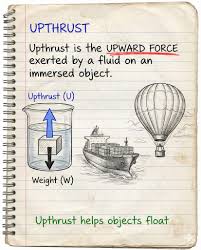 UPTHRUST
Upthrust is the UPWARD FORCE
exerted by a fluid on an
immersed object.
Upthrust (U)
Weight (W)
Upthrust helps objects float